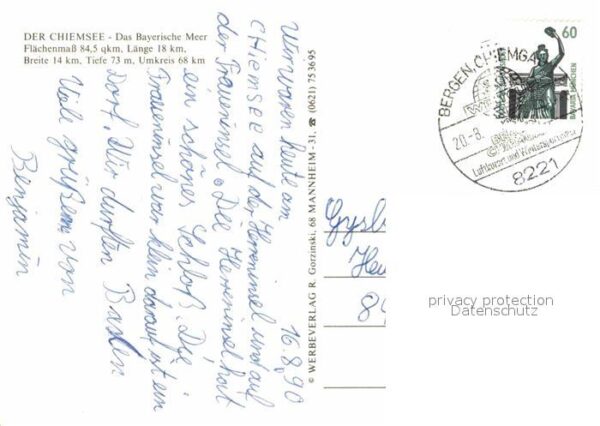 DER CHIEMSEE - Das Bayerische Meer
Flächenmaß 84,5 qkm, Länge 18 km,
Breite 14 km, Tiefe 73 m, Umkreis 68 km
16.8.90
Wir waren heute am
CHiemSEE auf der Herreninsel und auf
der Fraueninsel. Die Herreninsel hat
ein schönes Schloß. Die
Fraueninsel war klein darauf ist ein
Dorf. Wir durften Baden
Viele grüße von
Benjamin
© WERBEVERLAG R. Gorzinski, 68 MANNHEIM-31, ☎ (0621) 753695
60
BERGEN, CHIEMGAU
20.-8.
Luftkurort und Wintersportort
8221
privacy protection
Datenschutz